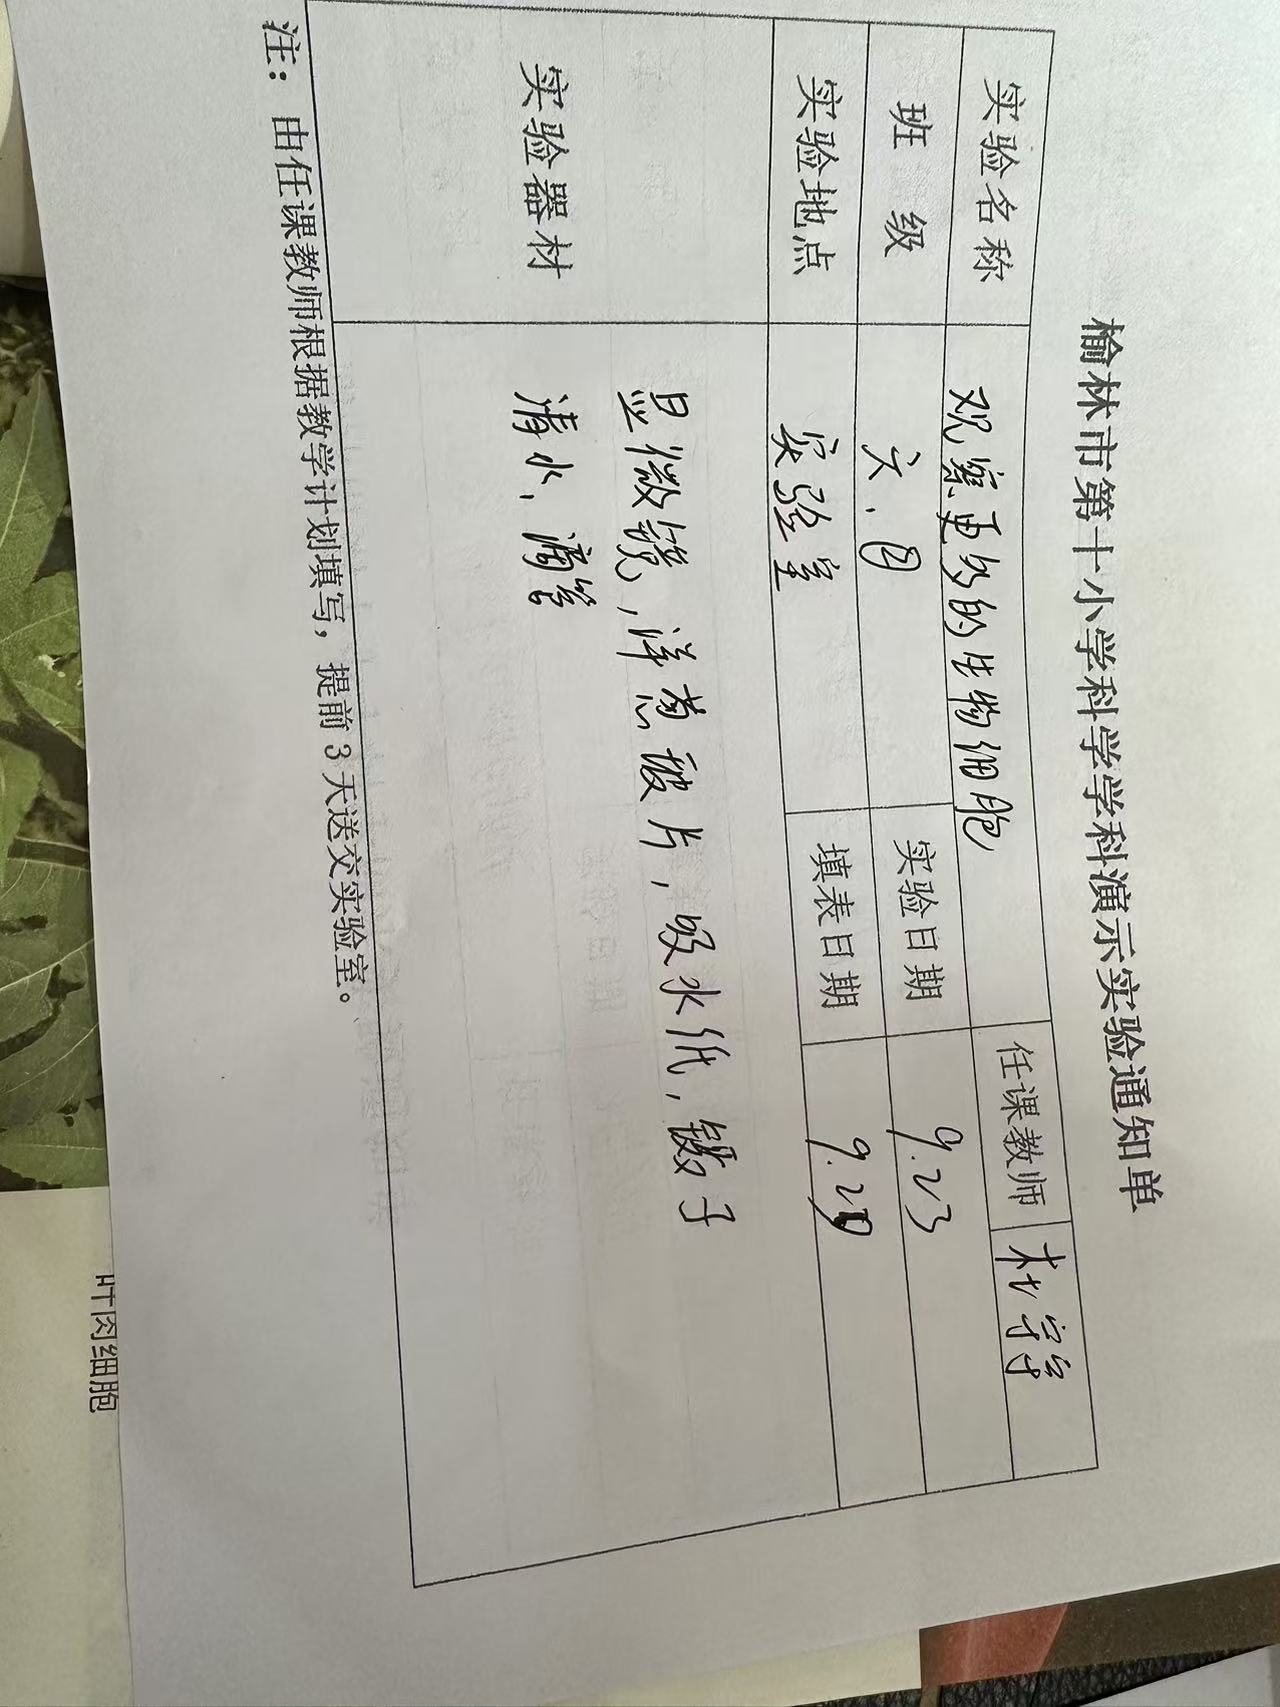 榆林市第十小学科学学科演示实验通知单
实验名称 观察更多的生物细胞 任课教师
班 级 六、四 实验日期 9.23
实验地点 实验室 填表日期
实验器材 显微镜,洋葱皮片,吸水纸,镊子
清水、滴管
注：由任课教师根据教学计划填写，提前3天送交实验室。
叶肉细胞